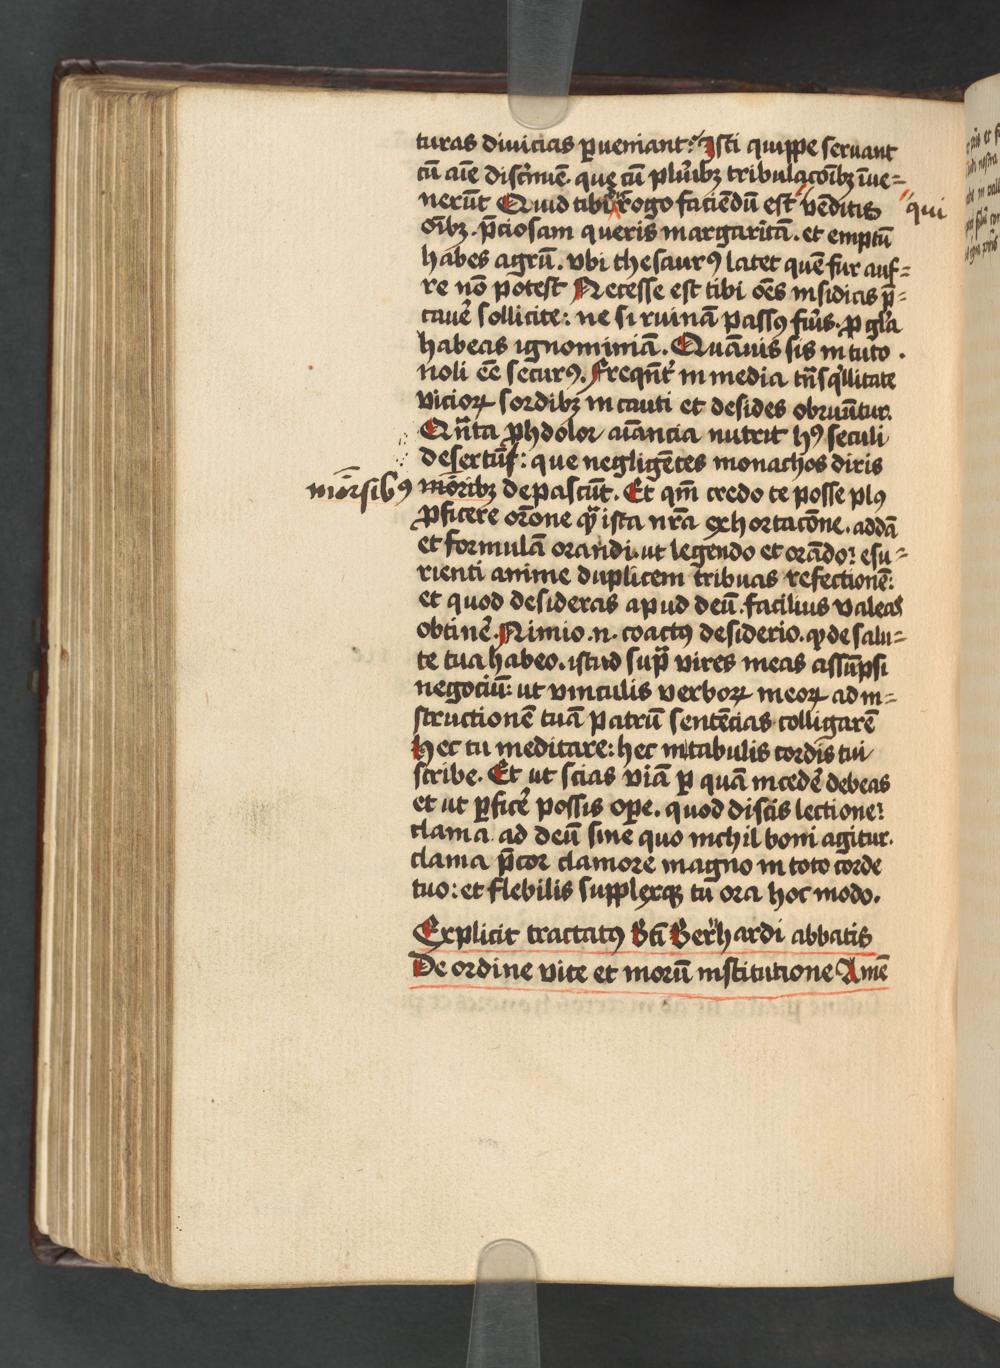 turas divicias ꝑveniant: Isti quippe servant
cū aīe discrīmīe. que cū plurībꝫ tribulacōībꝫ īve=
nerūt Quid tibi rogo faciēdū est vēditis "qui
oībꝫ. p̄ciosam queris margaritā. et emptū
habes agrū. ubi thesaurꝰ latet quē fur auf=
re nō potest Necesse est tibi oēs insidias p̄=
cavē sollicite: ne si ruinā passꝰ fūis. ꝓ gl̄a
habeas ignominiā. Quāvis sis in tuto .
noli eē securꝰ. Freqn̄t in media
vicioꝝ sordibꝫ incauti et desides obruūtur.
Qn̄ta ꝓhdolor nutrit hꝰ seculi
desertū: que negligētes monachos diris
mōrsibꝰ mōribꝫ depascūt. Et qm̄ credo te posse plꝰ
ꝓficere orōne qͣ ista nr̄a exhortacōne. addā
et formulā orandi. ut legendo et orādo: esu=
rienti anime duplicem tribuas refectionē:
et quod desideras apud deū. facilius valeas
obtinē. Nimio .n. coactꝰ desiderio. ꝙ de salu=
te tua habeo. istud supͣ vires meas assūpsi
negociū: ut vinculis verboꝝ meoꝝ ad in=
structionē tuā patrū sentēcias colligarē
Hec tu meditare: hec in tabulis cordis tui
scribe. Et ut scias viā ꝑ quā incedē debeas
et ut ꝑficē possis oꝑe. quod discis lectione:
clama ad deū sine quo nichil boni agitur.
clama p̄cor clamore magno in toto corde
tuo: et flebilis supplexqꝫ tū ora hoc modo.
Explicit tractatꝰ Bt̄i Bern̄hardi abbatis
De ordine vite et morū institutione Amē